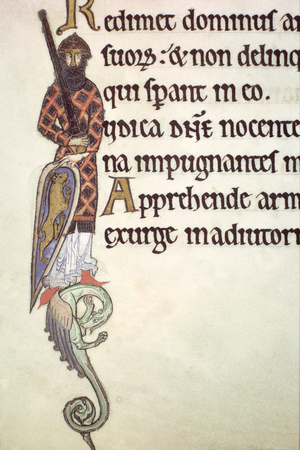 Redimet dominus a
suorꝝ: & non delinq
qui sꝑant in eo.
vdica dñe nocente
na impugnantes m
Apprehende arm
exurge in adiutori